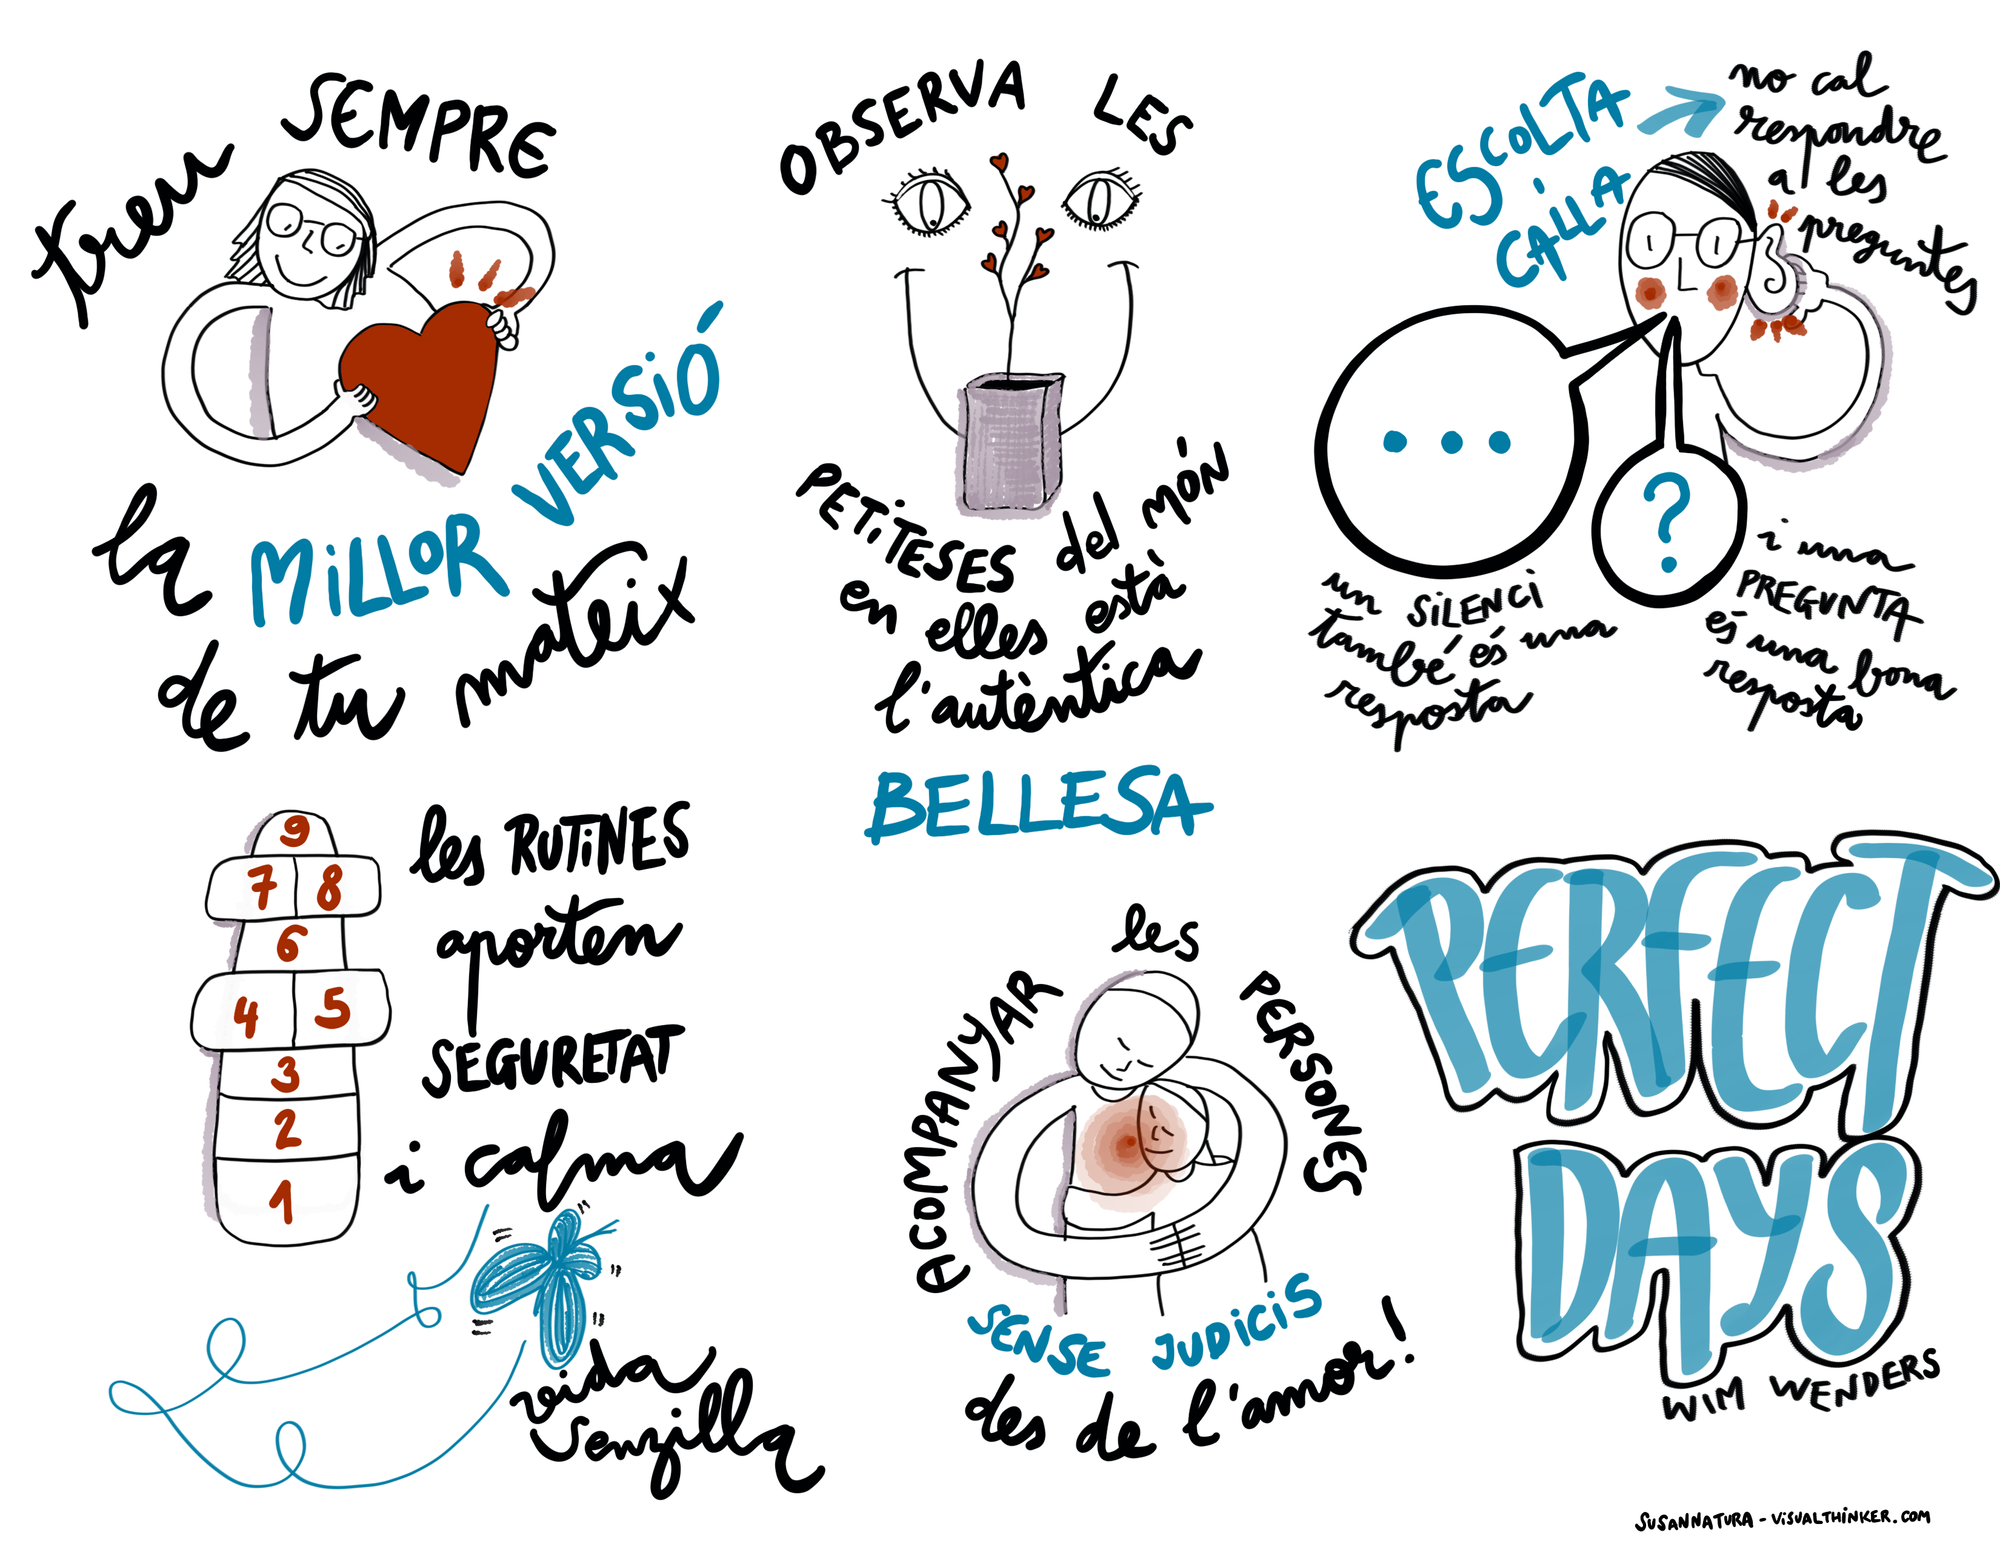 treu SEMPRE
la MiLLOR VERSiÓ
de tu mateix
OBSERVA LES
PETiTESES del MÓN
en elles està
l'autèntica
BELLESA
ESCOLTA
i
CALLA
no cal
respondre
a les
preguntes
...
?
un SiLENCi
també és una
resposta
i una
PREGUNTA
és una bona
resposta
9
7 8
6
4 5
3
2
1
les RUTiNES
aporten
SEGURETAT
i calma
vida
senzilla
ACOMPANYAR les PERSONES
SENSE JUDiCiS
des de l'amor!
PERFECT
DAYS
WIM WENDERS
SUSANNATURA - ViSUALTHiNKER.COM